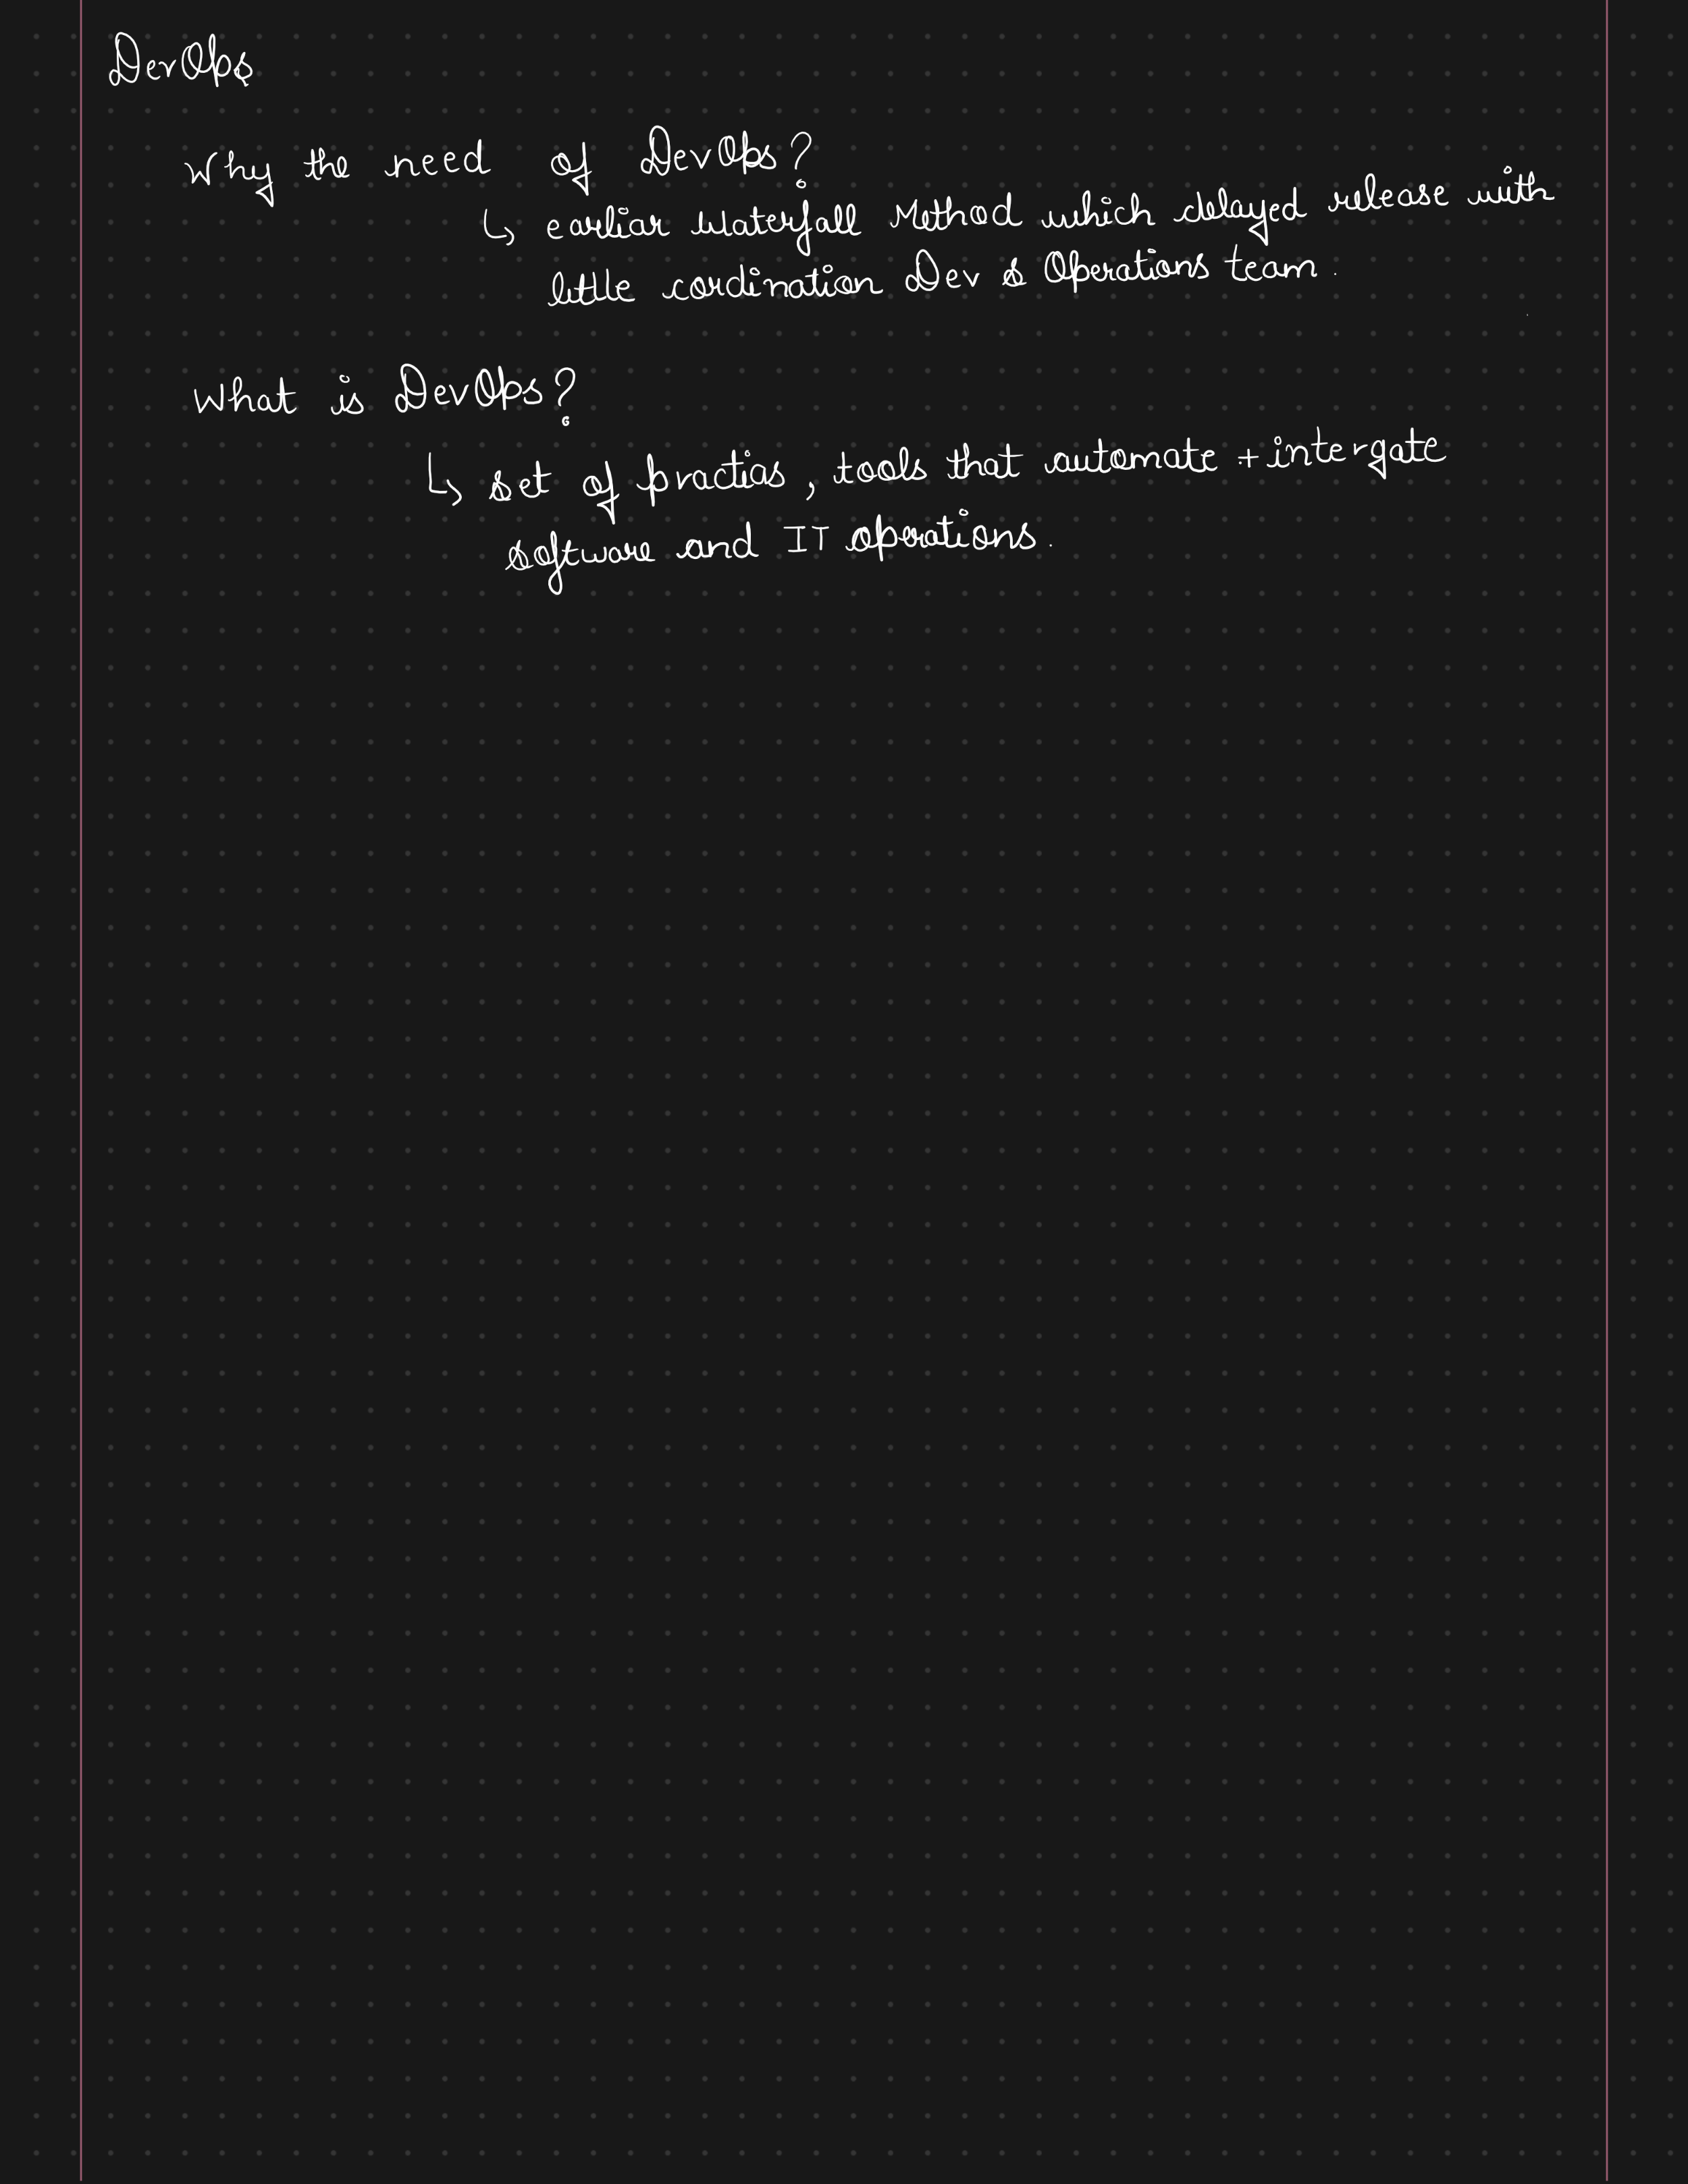 DevOps
Why the need of DevOps?
↳ earliar Waterfall Method which delayed release with
little cordination Dev & Operations team.
What is DevOps?
↳ set of practias, tools that automate + intergate
software and IT operations.